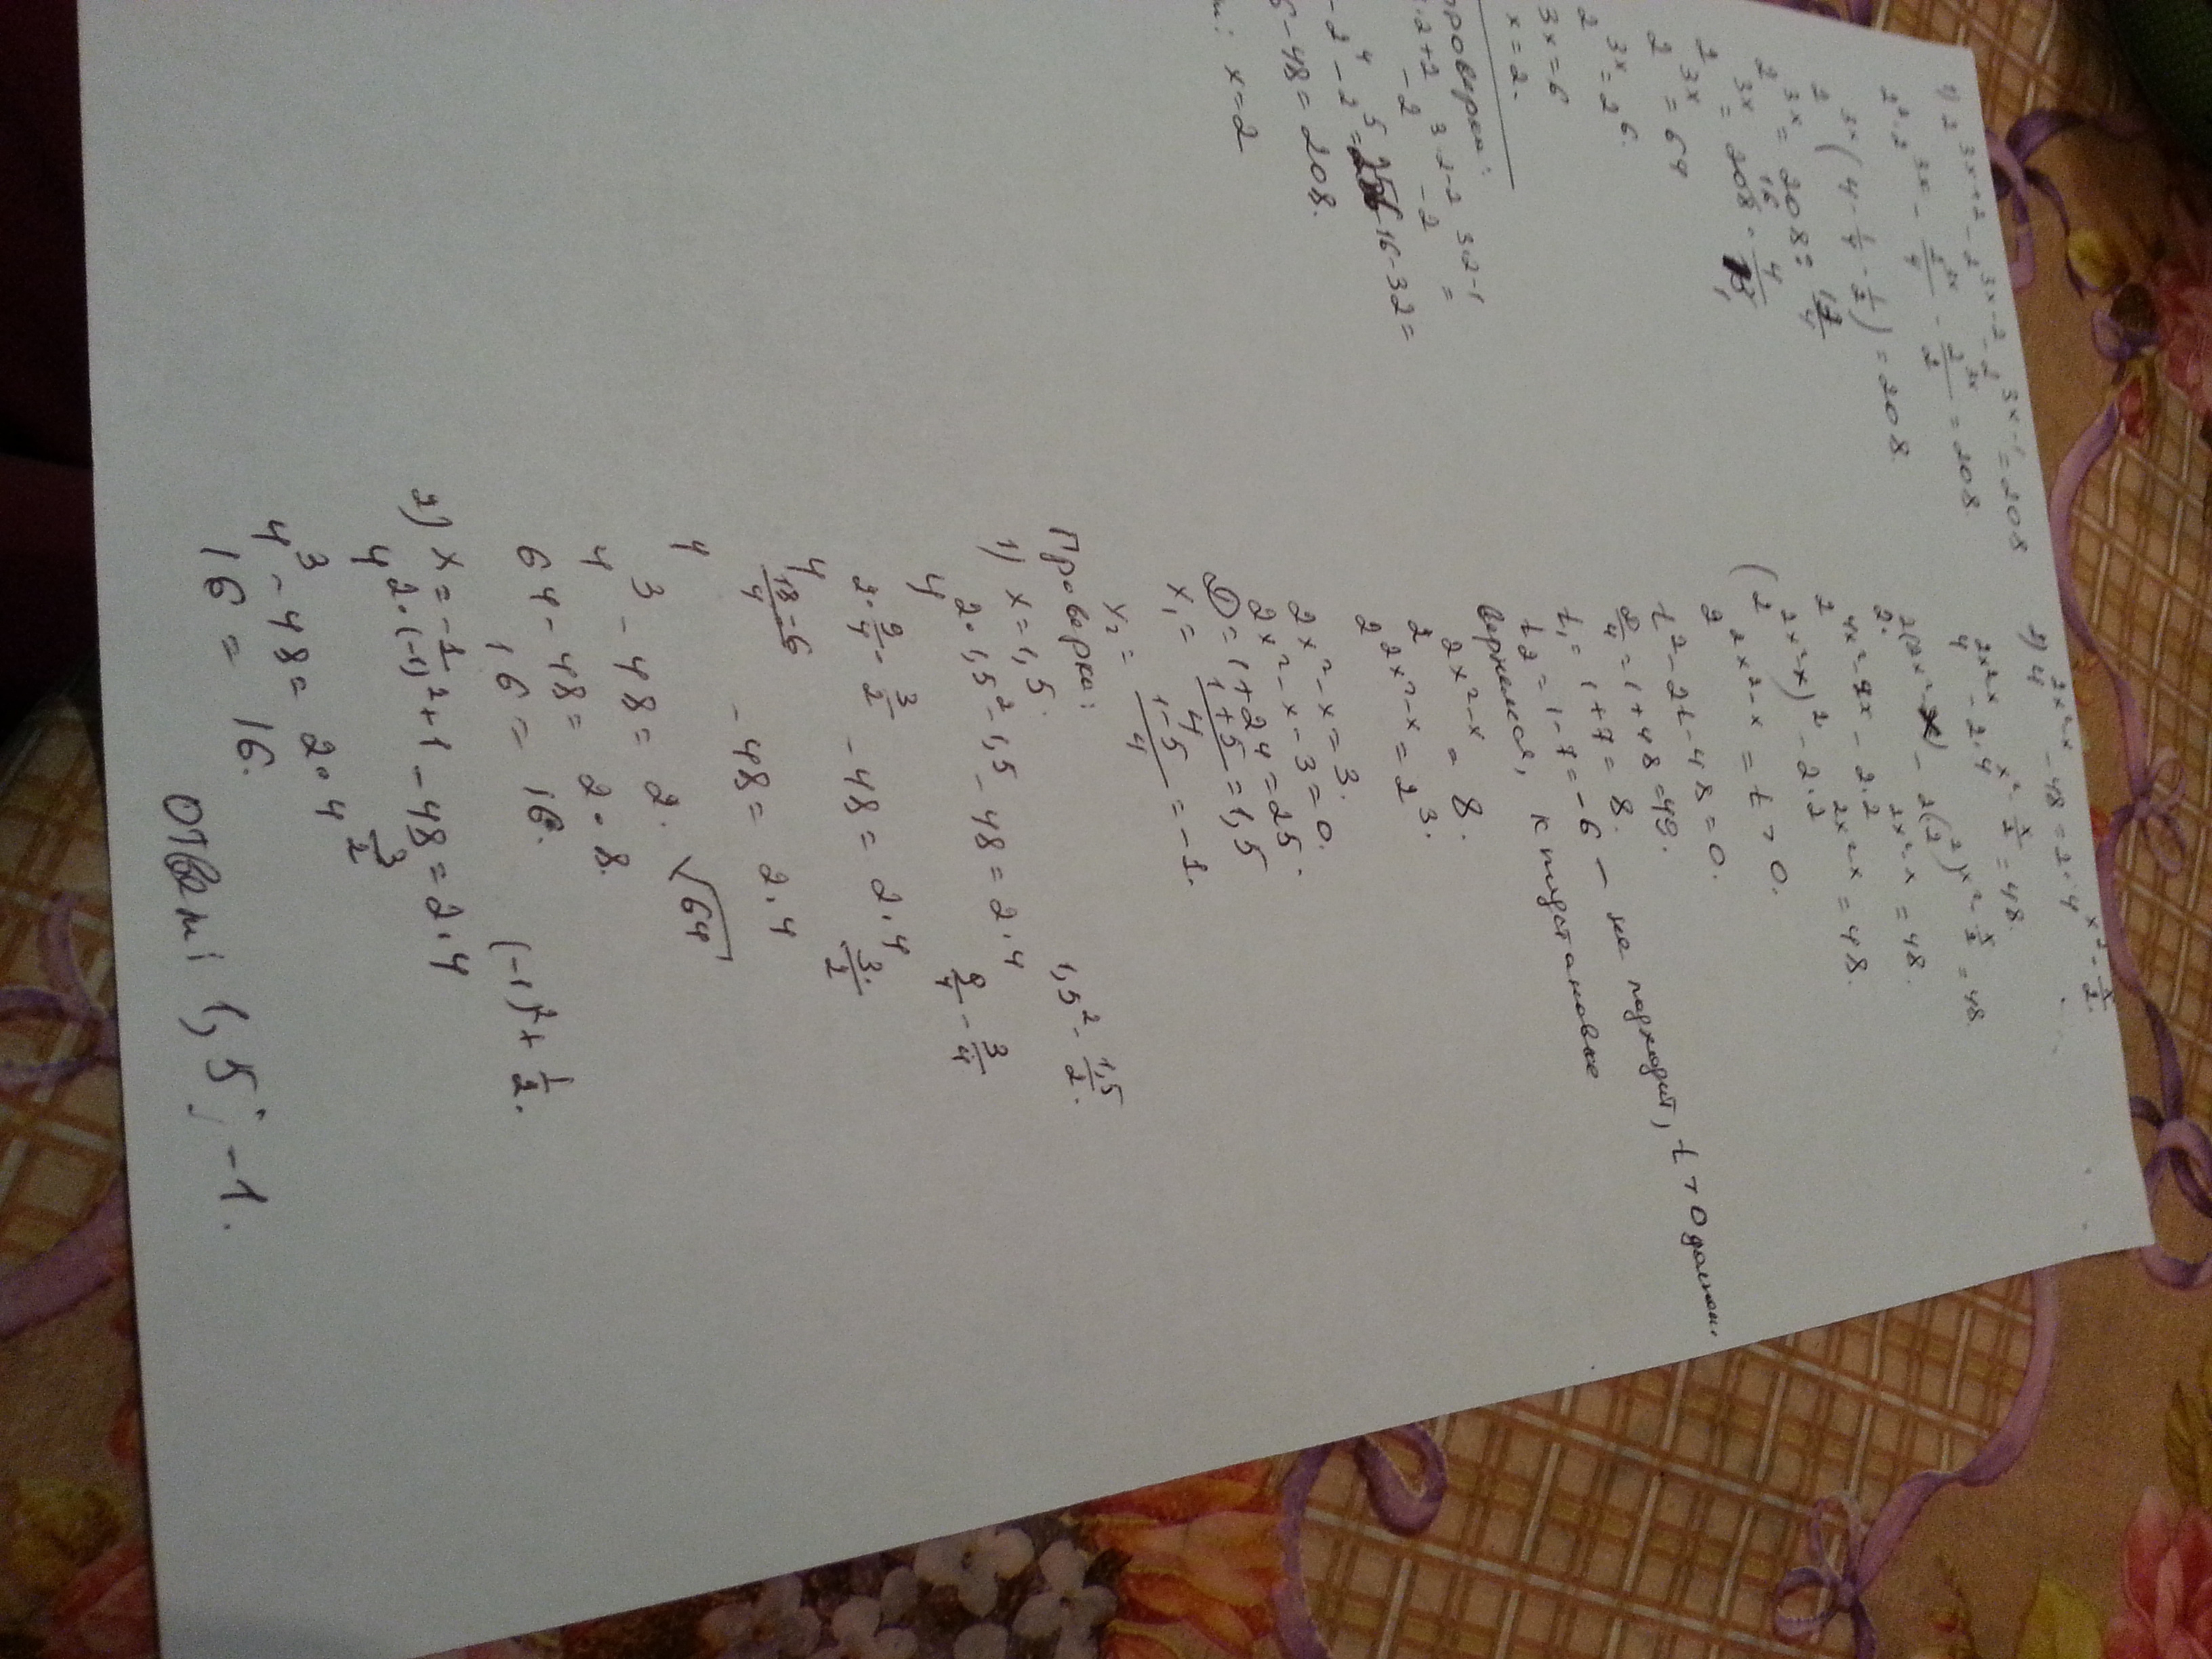 1) 2^{3x+2} - 2^{3x-2} - 2^{3x-1} = 208
2^2·2^{3x} - \frac{2^{3x}}{4} - \frac{2^{3x}}{2} = 208.
2^{3x}(4 - \frac{1}{4} - \frac{1}{2}) = 208.
2^{3x} = 208 : \frac{13}{4}
2^{3x} = 208 · \frac{4}{13}
2^{3x} = 64
2^{3x} = 2^6.
3x = 6
x = 2.
проверка:
·2+2 - 2^{3·2-2} - 2^{3·2-1} =
- 2^4 - 2^5 = 256-16-32=
6-48 = 208.
x=2
2) 4^{2x^2-x} - 48 = 2·4^{x^2-\frac{x}{2}}.
4^{2x^2-x} - 2·4^{x^2-\frac{x}{2}} = 48.
2^{2(2x^2-x)} - 2(2^2)^{x^2-\frac{x}{2}} = 48.
2^{4x^2-2x} - 2·2^{2x^2-x} = 48.
(2^{2x^2-x})^2 - 2·2^{2x^2-x} = 48.
2^{2x^2-x} = t > 0.
t^2 - 2t - 48 = 0.
\frac{D}{4} = 1+48 = 49.
t_1 = 1+7 = 8.
t_2 = 1-7 = -6 — не подходит, t > 0
Вернемся, к подстановке
2^{2x^2-x} = 8.
2^{2x^2-x} = 2^3.
2x^2 - x = 3.
2x^2 - x - 3 = 0.
D = 1+24 = 25.
x_1 = \frac{1+5}{4} = 1,5
x_2 = \frac{1-5}{4} = -1.
Проверка:
1) x = 1,5. 1,5^2 - \frac{1,5}{2}.
4^{2·1,5^2-1,5} - 48 = 2·4^{\frac{9}{4}-\frac{3}{4}}
4^{2·\frac{9}{4}-\frac{3}{2}} - 48 = 2·4^{\frac{3}{2}}.
4^{\frac{18-6}{4}} - 48 = 2·4
4^3 - 48 = 2·\sqrt{64}
64 - 48 = 2·8.
16 = 16.
2) x = -1 (-1)^2 + \frac{1}{2}.
4^{2·(-1)^2+1} - 48 = 2·4^{\frac{3}{2}}
4^3 - 48 = 2·4
16 = 16.
Ответ: 1,5; -1.